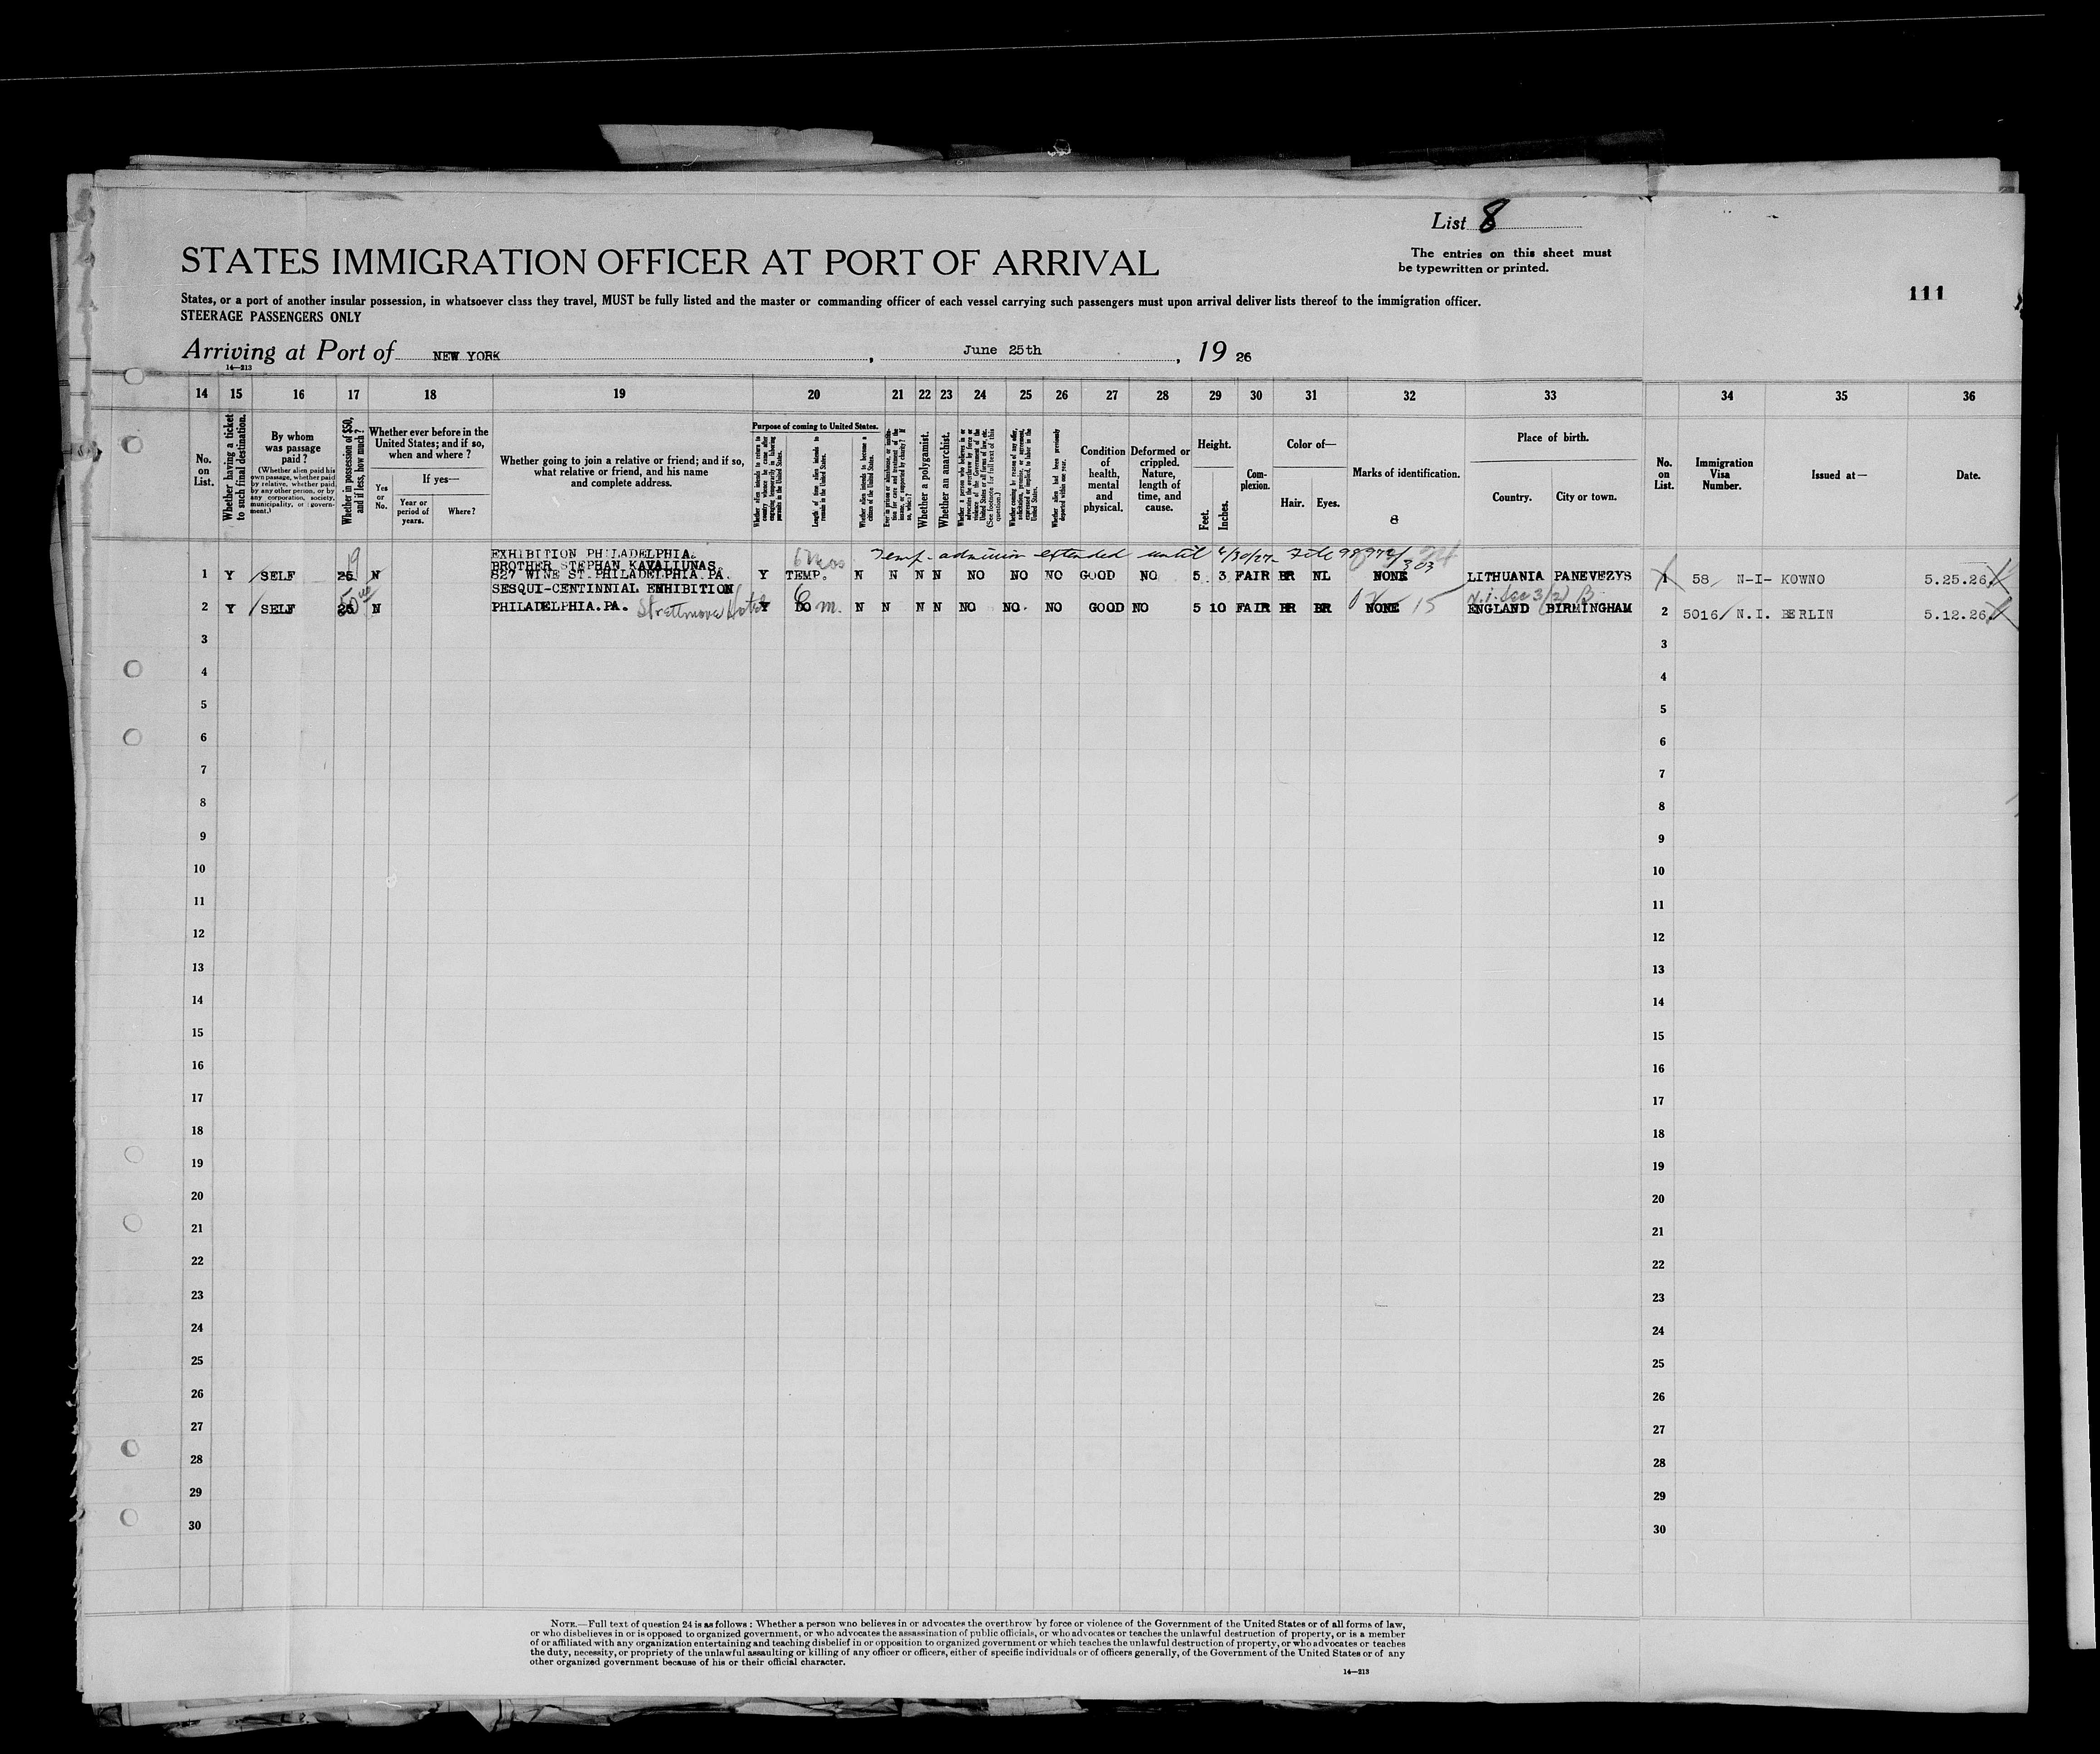 List 8
STATES IMMIGRATION OFFICER AT PORT OF ARRIVAL
The entries on this sheet must
be typewritten or printed.
111
States, or a port of another insular possession, in whatsoever class they travel, MUST be fully listed and the master or commanding officer of each vessel carrying such passengers must upon arrival deliver lists thereof to the immigration officer.
STEERAGE PASSENGERS ONLY
Arriving at Port of NEW YORK, June 25th, 19 26
14—213
14 15 16 17 18 19 20 21 22 23 24 25 26 27 28 29 30 31 32 33 34 35 36
No. on List.
Whether having a ticket to such final destination.
By whom was passage paid?
(Whether alien paid his own passage, whether paid by relative, whether paid by any other person, or by any corporation, society, municipality, or government.)
Whether in possession of $50, and if less, how much?
Whether ever before in the United States; and if so, when and where?
Yes or No.
If yes—
Year or period of years.
Where?
Whether going to join a relative or friend; and if so, what relative or friend, and his name and complete address.
Purpose of coming to United States.
Whether alien intends to return to country whence he came after engaging temporarily in laboring pursuits in the United States.
Length of time alien intends to remain in the United States.
Whether alien intends to become a citizen of the United States.
Whether a polygamist.
Whether an anarchist.
Whether alien had been previously deported within one year.
Condition of health, mental and physical.
Deformed or crippled. Nature, length of time, and cause.
Height.
Feet. Inches.
Complexion.
Color of—
Hair. Eyes.
Marks of identification.
8
Place of birth.
Country. City or town.
No. on List.
Immigration Visa Number.
Issued at—
Date.
EXHIBITION PHILADELPHIA. 6 mos Temp. admission extended until 4/30/27 File
BROTHER STEPHAN KAVALIUNAS
1 Y SELF 25 N 827 WINE ST. PHILADELPHIA. PA. Y TEMP. N N N N NO NO NO GOOD NO 5 3 FAIR BR NL NONE LITHUANIA PANEVEZYS 1 58 N-I- KOWNO 5.25.26
SESQUI-CENTINNIAL EXHIBITION
2 Y SELF 25 N PHILADELPHIA. PA. Hotel Y DO 6 m. N N N N NO NO. NO GOOD NO 5 10 FAIR BR BR NONE 15 ENGLAND BIRMINGHAM 2 5016 N.I. BERLIN 5.12.26
3 3
4 4
5 5
6 6
7 7
8 8
9 9
10 10
11 11
12 12
13 13
14 14
15 15
16 16
17 17
18 18
19 19
20 20
21 21
22 22
23 23
24 24
25 25
26 26
27 27
28 28
29 29
30 30
NOTE.—Full text of question 24 is as follows: Whether a person who believes in or advocates the overthrow by force or violence of the Government of the United States or of all forms of law,
or who disbelieves in or is opposed to organized government, or who advocates the assassination of public officials, or who advocates or teaches the unlawful destruction of property, or is a member
of or affiliated with any organization entertaining and teaching disbelief in or opposition to organized government or which teaches the unlawful destruction of property, or who advocates or teaches
the duty, necessity, or propriety of the unlawful assaulting or killing of any officer or officers, either of specific individuals or of officers generally, of the Government of the United States or of any
other organized government because of his or their official character.
14—213